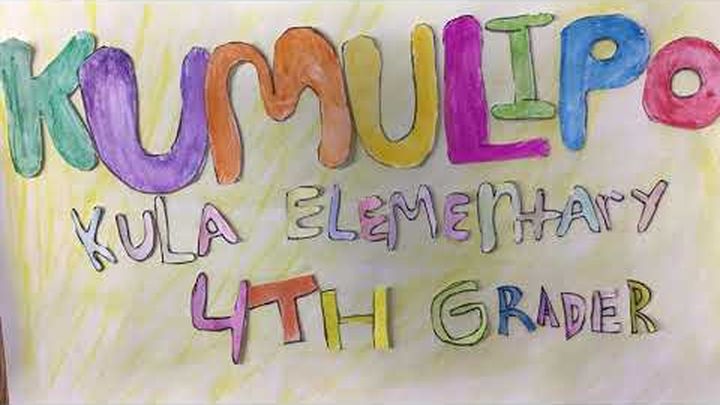 KUMULIPO
KULA ELEMENTARY
4TH GRADER